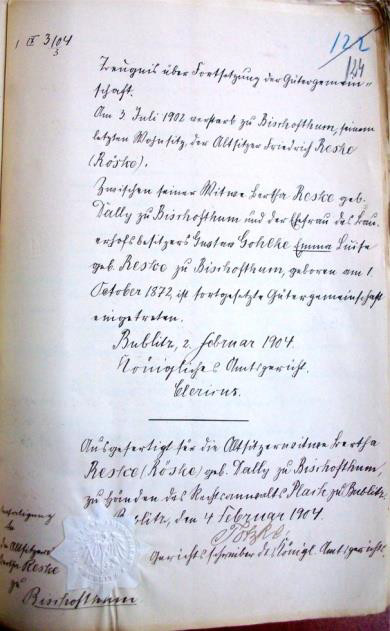 IV 3/04
3
122
124
Zeugnis über Fortsetzung der Gütergemein-
schaft.
Am 3. Juli 1902 verstarb zu Bischofthum, seinem
letzten Wohnsitz, der Altsitzer Friedrich Reske
(Röske).
Zwischen seiner Witwe Bertha Reske geb.
Dally zu Bischofthum und der Ehefrau des Bau-
erhofsbesitzers Gustav Gohlke Emma Luise
geb. Reske zu Bischofthum, geboren am 1.
October 1872, ist fortgesetzte Gütergemeinschaft
eingetreten.
Bublitz, 2. Februar 1904.
Königliches Amtsgericht.
Clericus.
Ausgefertigt für die Altsitzerwitwe Bertha
Reske (Röske) geb. Dally zu Bischofthum,
zu Händen des Rechtsanwalts Plath zu Bublitz.
Bublitz, den 4 Februar 1904.
Gerichtsschreiber des Königl. Amtsgerichts.
Ausfertigung
die Altsitzers
Bertha Reske
zu
Bischofthum